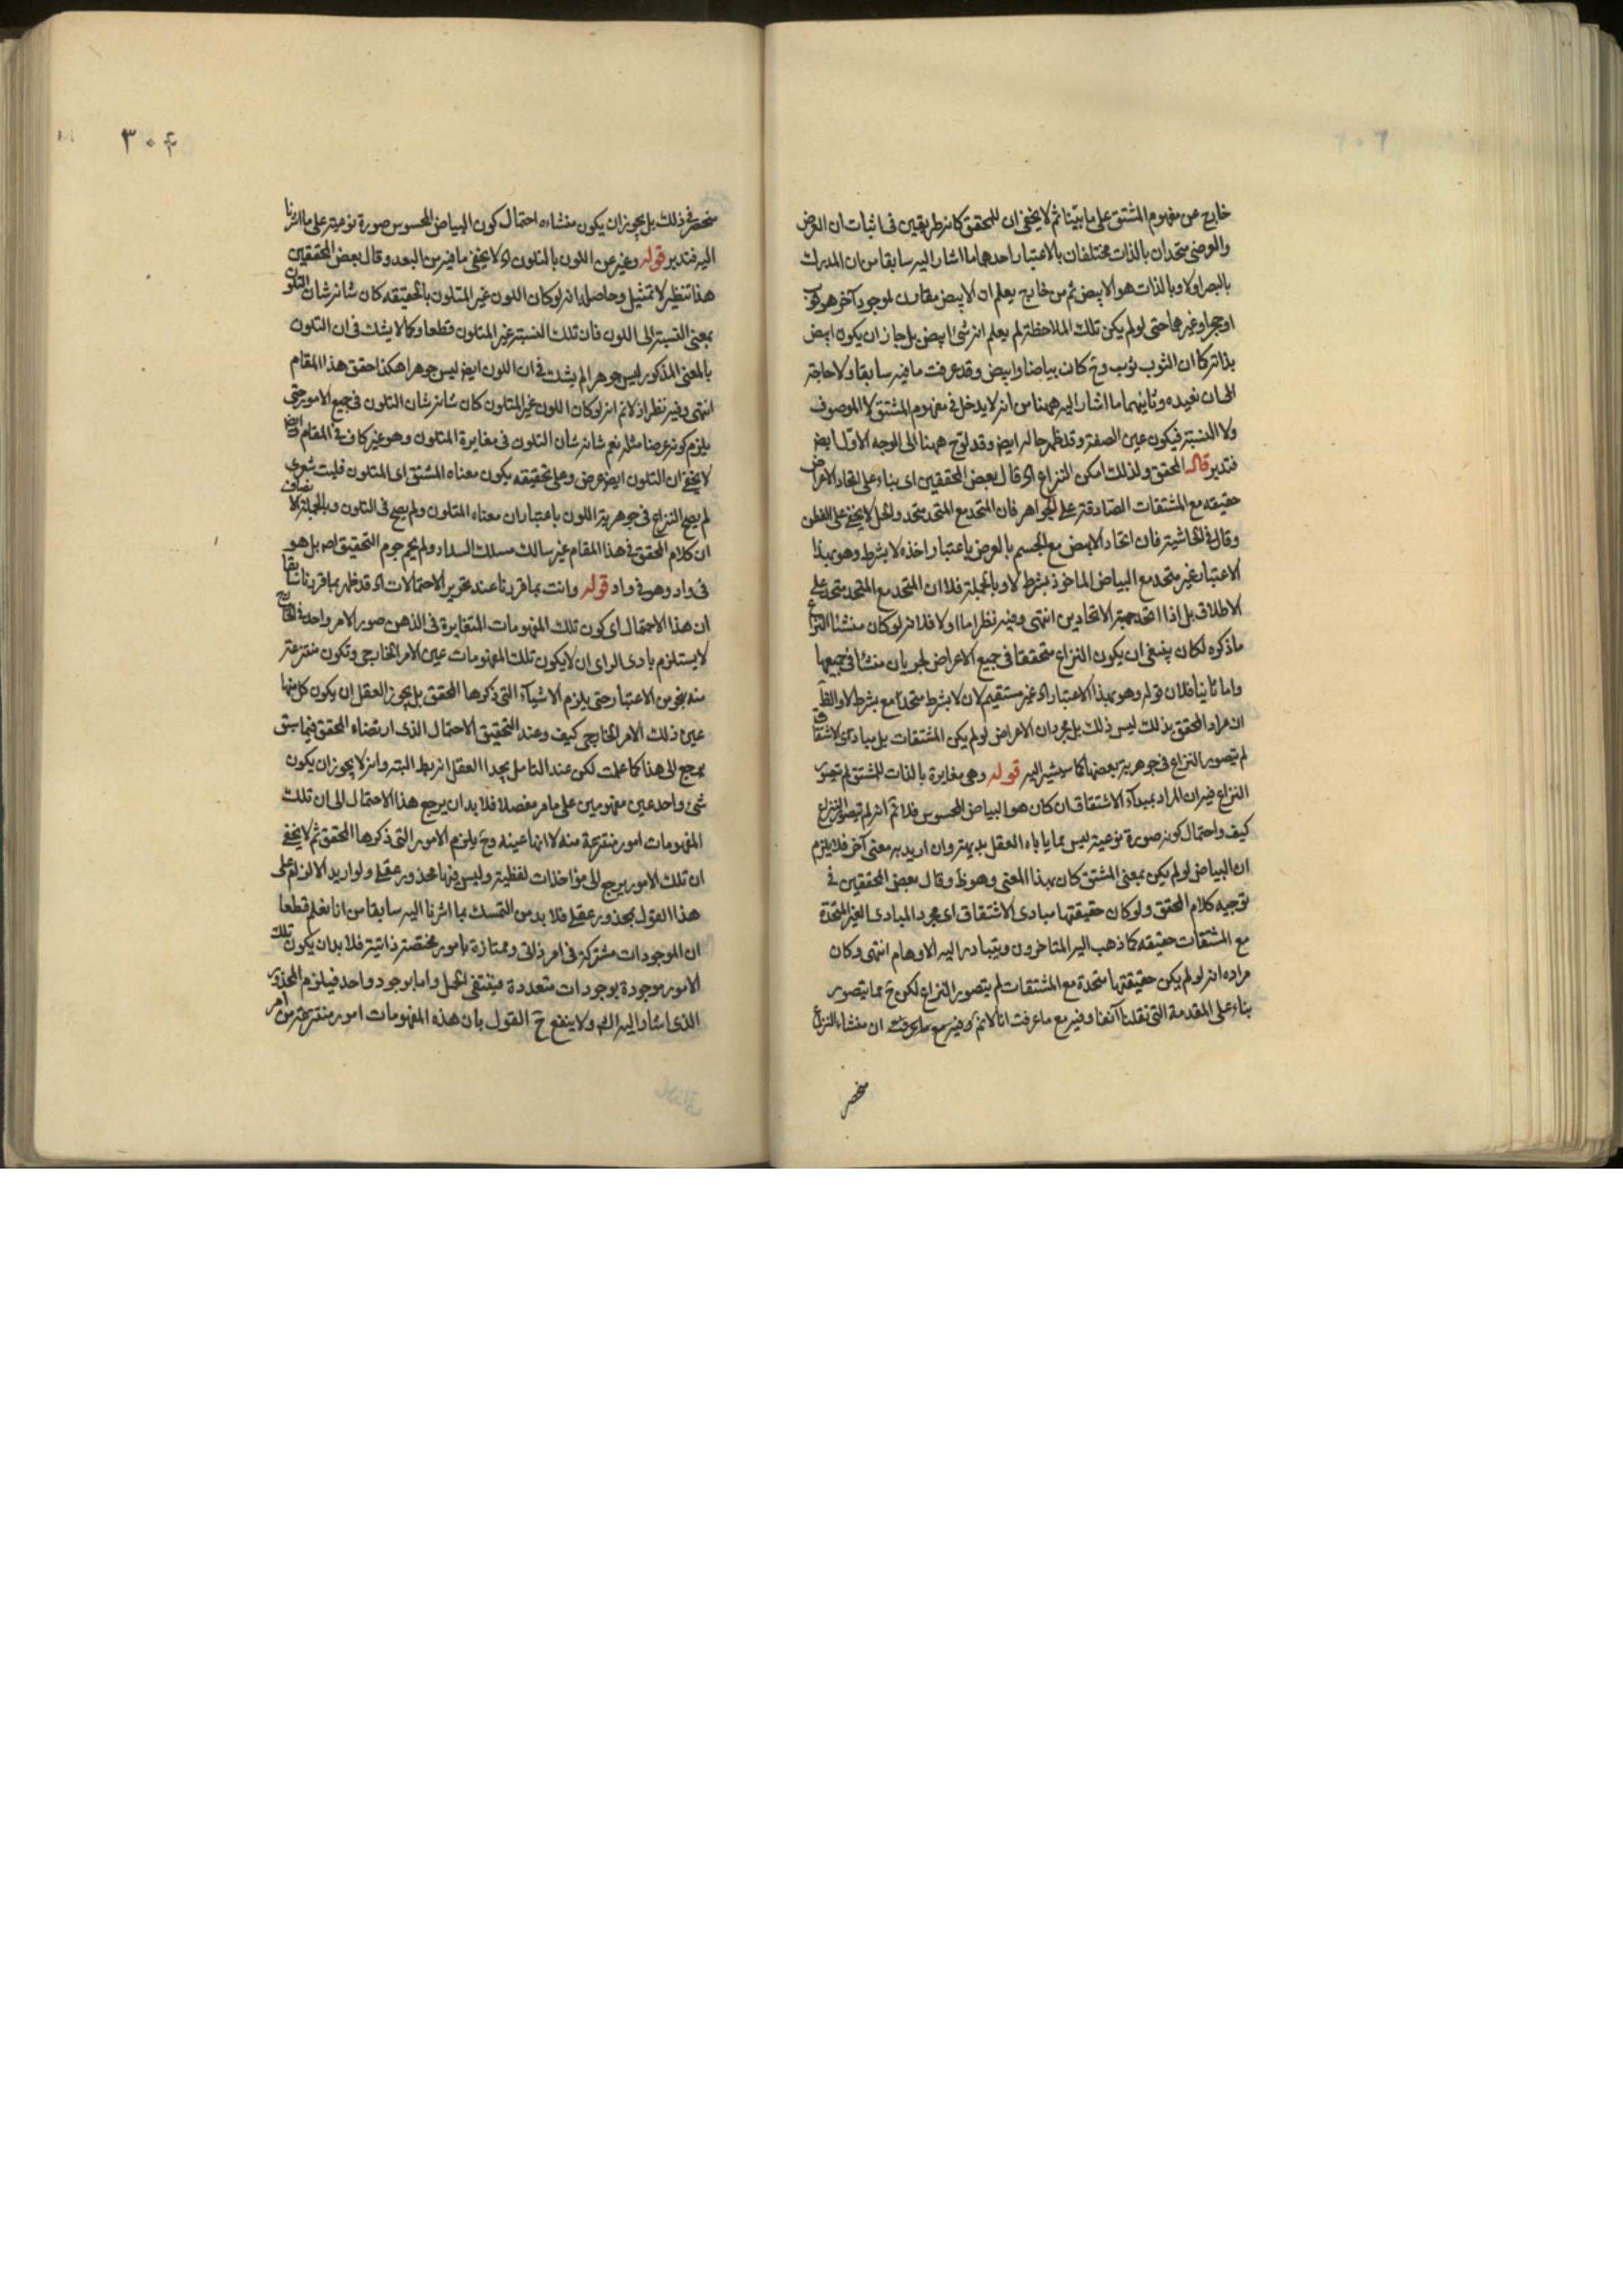 خارج عن مفهوم المشتق على ما بيّنا ثم لا يخفى ان للمحقق كانه طريقين فى اثبات ان العرض
والعرضى متحدان بالذات مختلفان بالاعتبار احدهما ما اشار اليه سابقا من ان المدرك
بالبصر اولا وبالذات هو الابيض ثم من خارج يعلم ان الابيض مقارن لموجود آخر هو ثوب
او حجر او غيرهما حتى لو لم يكن تلك الملاحظة لم يعلم انه شئ ابيض بل جاز ان يكون ابيض
بذاته كما ان الثوب ثوب وح كان بياضا وابيض وقد عرفت ما فيه سابقا ولا حاجة
الى ان نعيده وثانيهما ما اشار اليه ههنا من انه لا يدخل فى مفهوم المشتق لا الموصوف
ولا النسبة فيكون عين الصفة وقد ظهر حاله ايض وقد لوّح ههنا الى الوجه الاوّل ايض
فتدبر قال المحقق ولذلك امكن النزاع اه قال بعض المحققين اى بناء على اتحاد الاعراض
حقيقه مع المشتقات الصادقة على الجواهر فان المتحد مع المتحد متحد والحل لا يخفى على الفطن
وقال فى الحاشية فان اتحاد الابيض مع الجسم بالعرض باعتبار اخذه لا بشرط وهو بهذا
الاعتبار غير متحد مع البياض الماخوذ بشرط لا وبالجملة فلا ان المتحد مع المتحد متحد على
الاطلاق بل اذا اتحد جهتة الاتحادين انتهى وفيه نظر اما اولا فلانه لو كان منشا النزاع
ما ذكره لكان ينبغى ان يكون النزاع متحققا فى جميع الاعراض لجريان منشا فى جميعها
واما ثانيا فلان قوله وهو بهذا الاعتبار اه غير مستقيم لان لا بشرط متحد مع بشرط لا والظ
ان مراد المحقق بذلك ليس ذلك بل مجرد ان الاعراض لو لم يكن المشتقات بل مبادى الاشتقاق
لم يتصور النزاع فى جوهرية بعضها كما سيشير اليه قوله وهى مغايرة بالذات للمشتق لم يتصور
النزاع فيه ان المراد بمبدأ الاشتقاق ان كان هو البياض المحسوس فلا ثم انه لم يتصور النزاع
كيف واحتمال كونه صورة نوعية ليس مما ياباه العقل بديهة وان اريد به معنى آخر فلا يلزم
ان البياض لو لم يكن بمعنى المشتق كان بهذا المعنى وهو ظ وقال بعض المحققين فى
توجيه كلام المحقق ولو كان حقيقتها مبادى الاشتقاق اى مجرد المبادى الغير المتحدة
مع المشتقات حقيقه كما ذهب اليه المتاخرون ويتبادر اليه الاوهام انتهى وكان
مراده انه لو لم يكن حقيقتها متحدة مع المشتقات لم يتصور النزاع لكن ح مما يتصور
بناء على المقدمة التى نقلنا آنفا وفيه مع ما عرفت انا لا نم وفيه مع ما عرفت ان منشاء النزاع
منحصر
٣٠٤
منحصر فى ذلك بل يجوز ان يكون منشاءه احتمال كون البياض المحسوس صورة نوعية على ما اشرنا
اليه فتدبر قوله وغير عن اللون بالمتلون اه لا يخفى ما فيه من البعد وقال بعض المحققين
هذا تنظير لا تمثيل وحاصله انه لو كان اللون غير المتلون بالحقيقه كان شانه شان التلون
بمعنى النسبة الى اللون فان تلك النسبة غير المتلون قطعا وكما لا يشك فى ان التلون
بالمعنى المذكور ليس جوهرا لم يشك فى ان اللون ايض ليس جوهرا هكذا حقق هذا المقام
انتهى وفيه نظر اذ لا نم انه لو كان اللون غير المتلون كان شانه شان التلون فى جميع الامور حتى
يلزم كونه عرضا مثله نعم شانه شان التلون فى مغايرة المتلون وهو غير كاف فى المقام وايض
لا يخفى ان التلون ايض عرض وعلى تحقيقه يكون معناه المشتق اى المتلون فليت شعرى
لم يصح النزاع فى جوهرية اللون باعتبار ان معناه المتلون ولم يصح فى التلون وبالجملة الانصاف
ان كلام المحقق فى هذا المقام غير سالك مسلك السداد ولم يحم حوم التحقيق اصلا بل هو
فى واد وهو فى واد قوله وانت بما قررنا عند تحرير الاحتمالات اه قد ظهر بما قررنا سابقا
ان هذا الاحتمال اى كون تلك المفهومات المتغايرة فى الذهن صور الامر واحد فى الخارج
لا يستلزم بادى الراى ان لا يكون تلك المفهومات عين الامر الخارجى وتكون منتزعة
منه بنحو من الاعتبار حتى يلزم الاشياء التى ذكرها المحقق بل يجوز العقل ان يكون كل منها
عين ذلك الامر الخارجى كيف وعند التحقيق الاحتمال الذى ارتضاه المحقق فيما سبق
يرجع الى هذا كما علمت لكن عند التامل يجد العقل انه بط البتة وانه لا يجوز ان يكون
شئ واحد عين مفهومين على ما مر مفصلا فلا بد ان يرجع هذا الاحتمال الى ان تلك
المفهومات امور منتزعة منه لا انها عينه وح يلزم الامور التى ذكرها المحقق ثم لا يخفى
ان تلك الامور يرجع الى مؤاخذات لفظية وليس فيها محذور عقلى ولو اريد الالزام على
هذا القول بمحذور عقلى فلا بد من التمسك بما اشرنا اليه سابقا من انا نعلم قطعا
ان الموجودات مشتركة فى امر ذاتى وممتازة بامور مختصة ذاتية فلا بد ان يكون تلك
الامور موجودة بوجودات متعددة فينتفى الحمل واما بوجود واحد فيلزم المحذور
الذى اشار اليه اه ولا ينفع ح القول بان هذه المفهومات امور منتزعة من امر